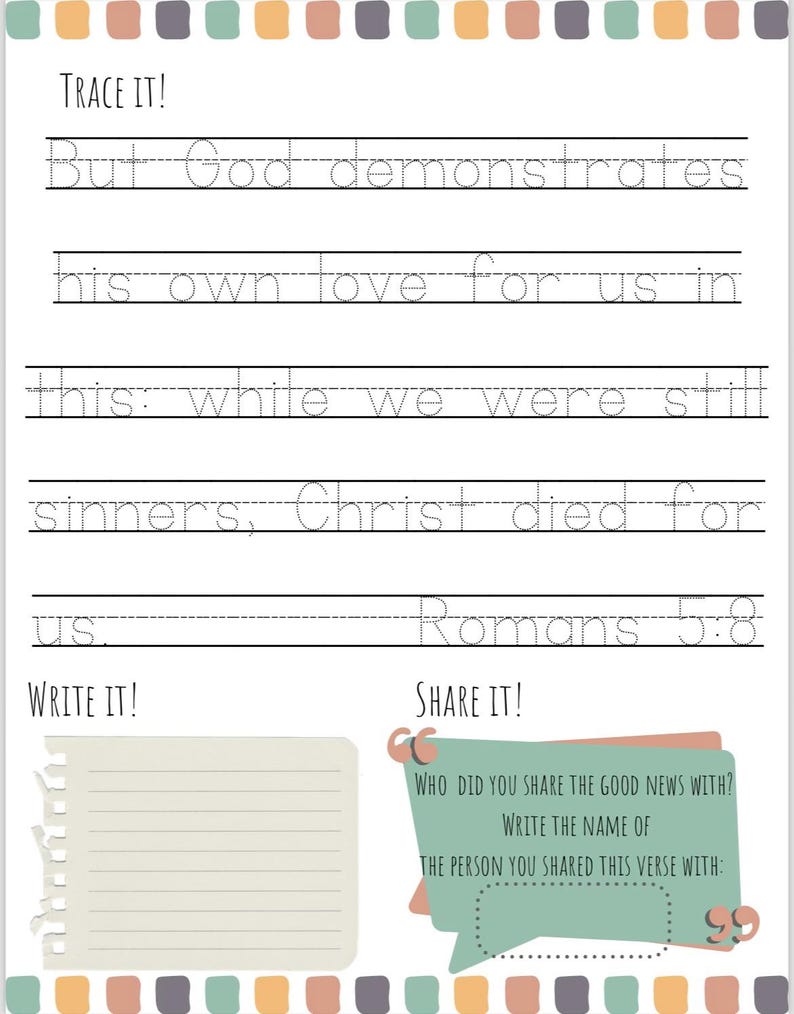 TRACE IT!
But God demonstrates
his own love for us in
this: while we were still
sinners, Christ died for
us. Romans 5:8
WRITE IT!
SHARE IT!
WHO DID YOU SHARE THE GOOD NEWS WITH?
WRITE THE NAME OF
THE PERSON YOU SHARED THIS VERSE WITH: